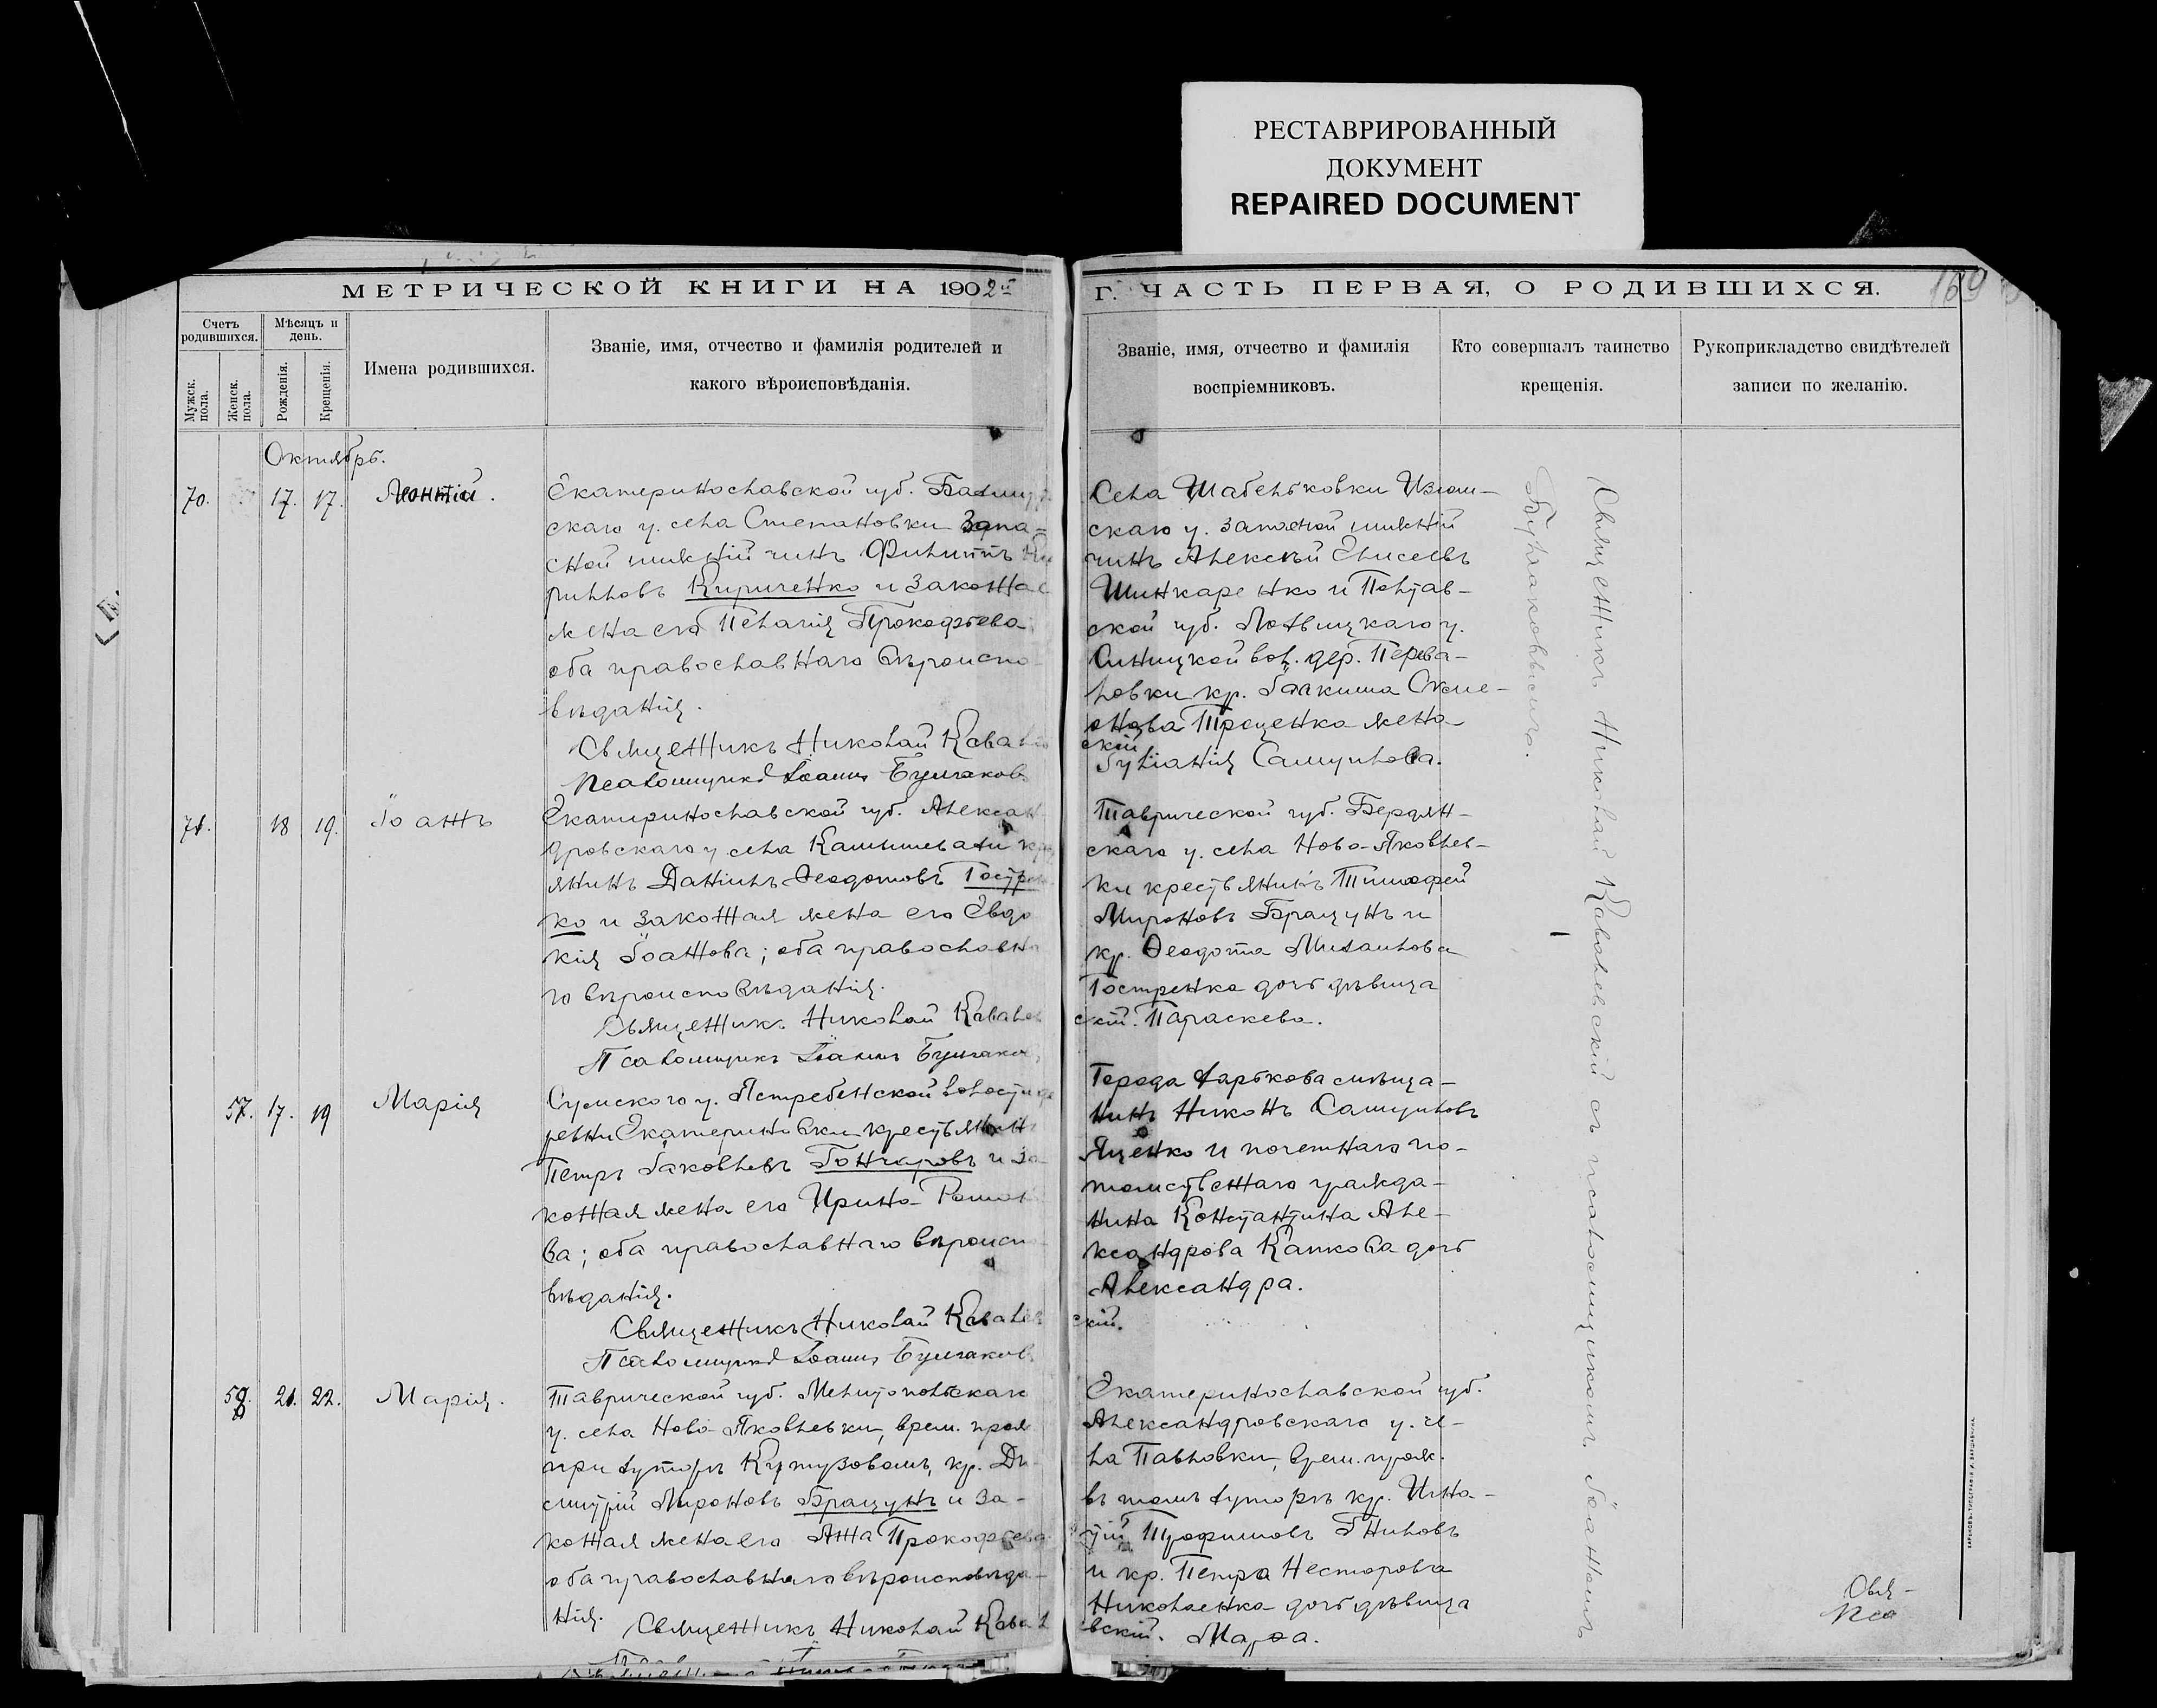 РЕСТАВРИРОВАННЫЙ
ДОКУМЕНТ
REPAIRED DOCUMENT
МЕТРИЧЕСКОЙ КНИГИ НА 1902
Г. ЧАСТЬ ПЕРВАЯ, О РОДИВШИХСЯ.
169
Счетъ родившихся.
Мужск. пола.
Женск. пола.
Мѣсяцъ и день.
Рожденія.
Крещенія.
Имена родившихся.
Званіе, имя, отчество и фамилія родителей и
какого вѣроисповѣданія.
Званіе, имя, отчество и фамилія
воспріемниковъ.
Кто совершалъ таинство
крещенія.
Рукоприкладство свидѣтелей
записи по желанію.
Октябрь.
70. 17. 17. Леонтій.
Екатеринославской губ. Бахмут
скаго у. села Степановки Запа-
сной нижній чинъ Филиппъ Ки
рилловъ Кириченко и законна
жена его Пелагія Прокофьева
оба православнаго вѣроиспо
вѣданія.
Священникъ Николай Кавале
Псаломщикъ Іоаннъ Булгаков
Села Шабельковки Изюм-
скаго у. запасной нижній
чинъ Алексѣй Елисеевъ
Шинкаренко и Полтав-
ской губ. Лохвицкаго у.
вол. дер.
ловки кр. Іоакима
Троценка жена
скій
Іуліанія Самуилова.
71. 18 19. Іоаннъ
Екатеринославской губ. Алексан
дровскаго у. села Камышевахи кре
янинъ Даніилъ Ѳеодотовъ Гострен
ко и законная жена его Евдо
кія Іоаннова; оба православна
го вѣроисповѣданія.
Священникъ Николай Кавалев
Псаломщикъ Іоаннъ Булгаков
Таврической губ. Бердян-
скаго у. села Ново-Яковлев-
ки крестьянинъ Тимофей
Мироновъ Бращунъ и
кр. Ѳеодота Михаилова
Гостренка дочь дѣвица
скій. Параскева.
57. 17. 19 Марія
Сумского у. Ястребенской волости де
ревни Екатериновки крестьянин
Петръ Іаковлевъ Гончаровъ и за-
конная жена его Ирина Роман
ва; оба православнаго вѣроиспо
вѣданія.
Священникъ Николай Кавалев
Псаломщикъ Іоаннъ Булгаков
Города Харькова мѣща-
нинъ Никонъ Самуиловъ
Яценко и почетнаго по-
томственнаго гражда-
нина Константина Але-
ксандрова Капкова дочь
Александра.
скій.
58. 21. 22. Марія.
Таврической губ. Мелитопольскаго
у. села Ново-Яковлевки, врем. прож
при хуторѣ Кутузовомъ, кр. Ди
митрій Мироновъ Бращунъ и за-
конная жена его Анна Прокофьева
оба православнаго вѣроисповѣда-
нія. Священникъ Николай Кавал
Екатеринославской губ.
Александровскаго у. се-
ла Павловки, врем. прож.
въ томъ хуторѣ кр. Игна-
тій Трофимовъ Гниловъ
и кр. Петра Несторова
Николаенка дочь дѣвица
вскій. Марѳа.
Священникъ Николай Кавалевскій съ псаломщикомъ Іоанномъ
Булгаковымъ.
Свя-
Пса